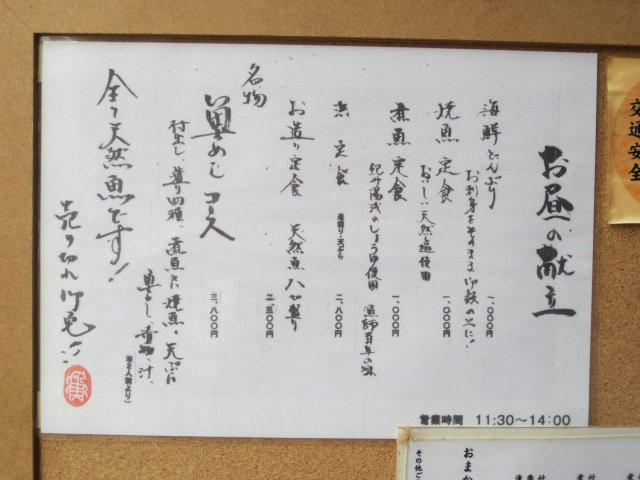 お昼の献立
海鮮どんぶり
お刺身をそのまま御飯の上に! 一、〇〇〇円
焼魚定食
おいしい天然塩使用 一、〇〇〇円
煮魚定食 一、〇〇〇円
紀州湯浅のしょうゆ使用 漁師百年の味
浜定食 造り・天ぷら 二、八〇〇円
お造り定食 天然魚八切盛り 二、三〇〇円
名物
めしコース 三、八〇〇円
付出し、造り四種、煮魚又は焼魚、天ぷら
めし、香物、汁、
※2人前より)
全て天然魚です!
売り切れ御免!!
営業時間 11:30〜14:00
交通安全
おまか
その他ご